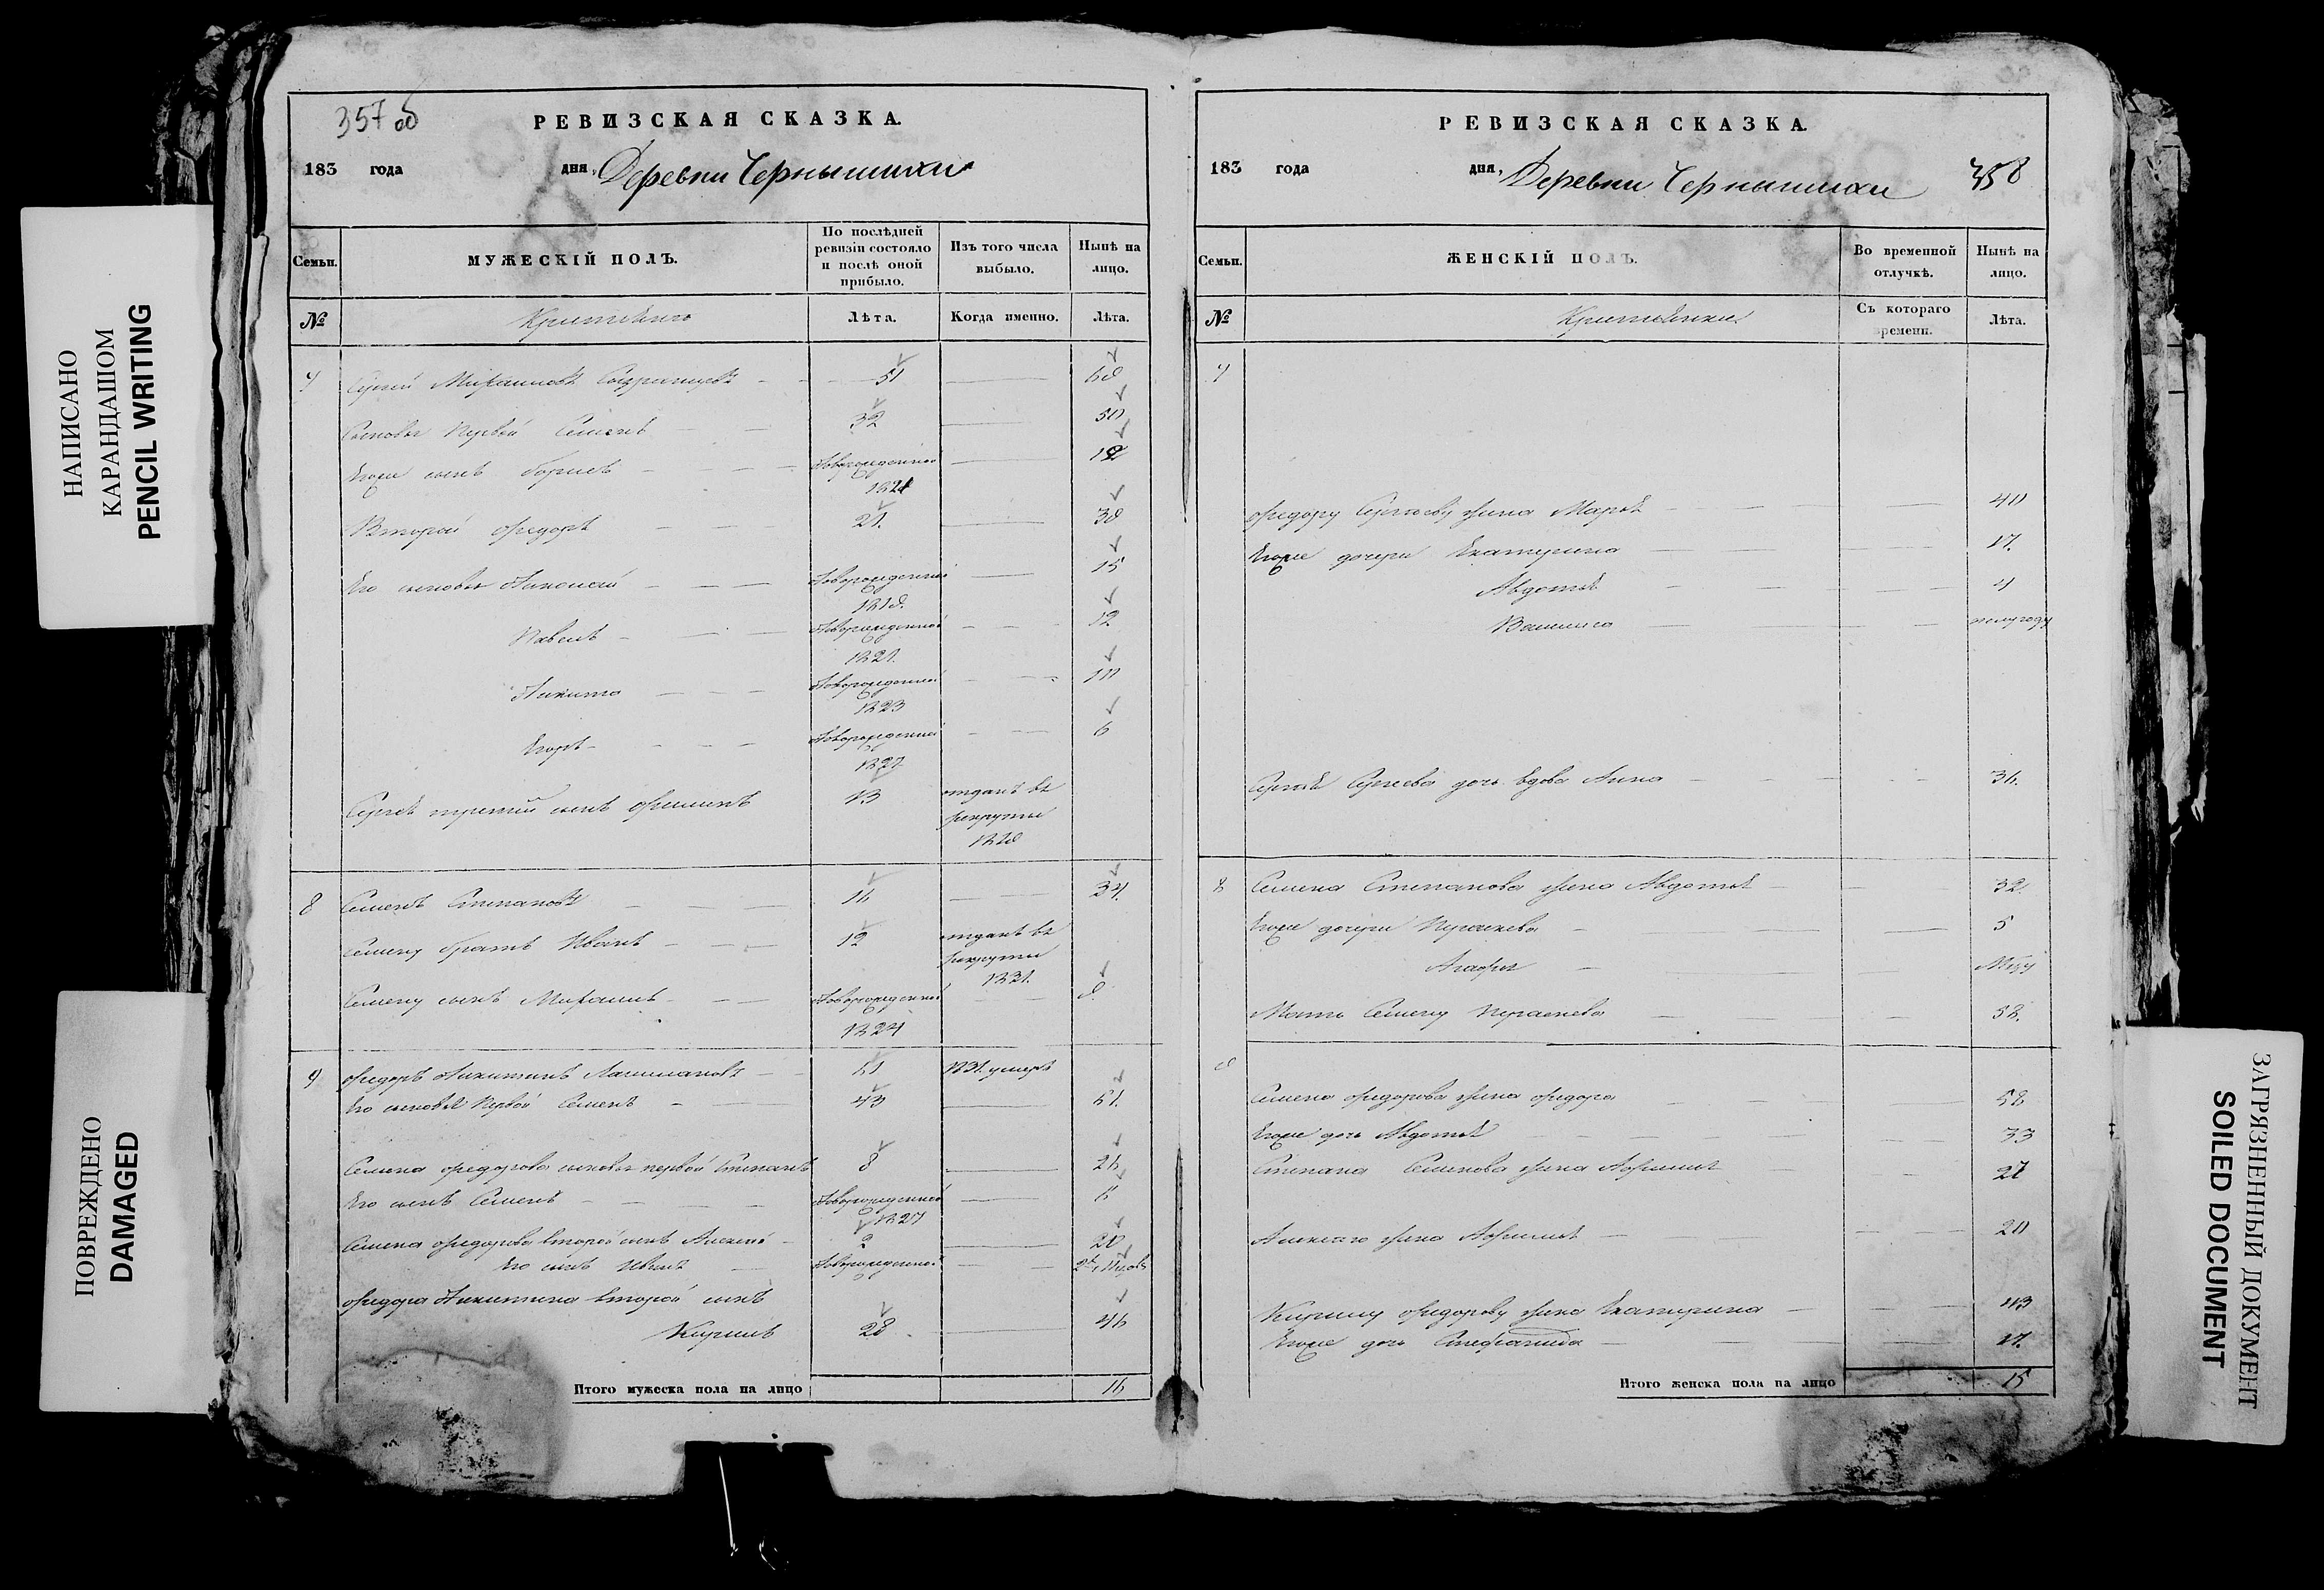 НАПИСАНО
КАРАНДАШОМ
PENCIL WRITING
ПОВРЕЖДЕНО
DAMAGED
357 об
РЕВИЗСКАЯ СКАЗКА.
183 года дня, Деревни Чернышихи
Семьи. МУЖЕСКІЙ ПОЛЪ. По послѣдней ревизіи состояло и послѣ оной прибыло. Изъ того числа выбыло. Нынѣ на лицо.
№ Лѣта. Когда именно. Лѣта.
7 Сергей Михайловъ 51 68
Сыновья Первой Семенъ 32 50
Егоже сынъ Борисъ Новорожденной 12
1821
Второй Федоръ 21. 38
Его сыновья Алексей Новорожденной 15
1818.
Павелъ Новорожденной 12
1821.
Никита Новорожденной 10
1823
Егоръ Новорожденной 6
1827
Сергея третий сынъ Филипъ 13 отданъ въ
рекруты
1828
8 Семенъ Степановъ 16 34.
Семену братъ Иванъ 12 отданъ въ
рекруты
1831.
Семену сынъ Михаилъ Новорожденной
1824
9 Федоръ Никитинъ 1831. умеръ
Его сыновья Первой Семенъ 43 61.
Семена Федорова сыновья первой Степанъ 8 26
Его сынъ Семенъ Новорожденной 6
1827
Семена Федорова второй сынъ Алексей 2 20
Его сынъ Иванъ Новорожденной
Федора Никитина второй сынъ
Кирилъ 28 46
Итого мужеска пола на лицо 16
РЕВИЗСКАЯ СКАЗКА.
183 года дня, Деревни Чернышихи 358
Семьи. ЖЕНСКІЙ ПОЛЪ. Во временной отлучкѣ. Нынѣ на лицо.
№ Съ котораго времени. Лѣта.
7
Федору Сергееву жена Марья 40
Егоже дочери Екатерина 17.
Авдотья 4
Василиса полугоду
Сергея Сергеева дочь вдова Анна 31.
8 Семена Степанова жена Авдотья 32.
Егоже дочери Прасковья 5
Агафья
Мать Семену Прасковья 58.
Семена Федорова жена Федора 58
Егоже дочь Авдотья 33
Степана Семенова жена 27
Алексея жена 20
Кирилу Федорову жена Екатерина 43
Егоже дочь Стефанида 17.
Итого женска пола на лицо 15
ЗАГРЯЗНЕННЫЙ ДОКУМЕНТ
SOILED DOCUMENT